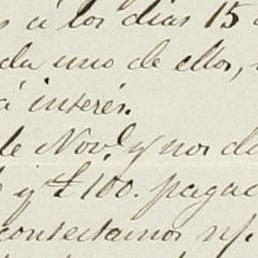 s á los días 15
da uno de ellos,
á interés.
de Nov.e y nos d
y £ 100. pagad
contestamos s/.